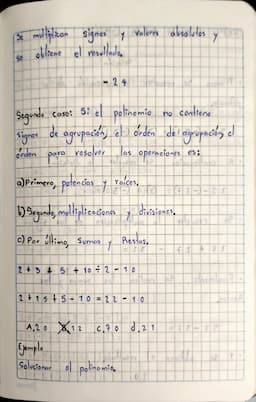 Se multiplican signos y valores absolutos y
se obtiene el resultado.
- 24
Segundo caso: Si el polinomio no contiene
signos de agrupación, el orden de agrupación, el
orden para resolver las operaciones es:
a) Primero, potencias y raíces.
b) Segundo, multiplicaciones y divisiones.
c) Por último, Sumas y Restas.
2 + 3 * 5 + 10 ÷ 2 - 10
2 + 15 + 5 - 10 = 22 - 10
A, 20 X 12 C, 70 d, 21
Ejemplo
Solucionar el polinomio.